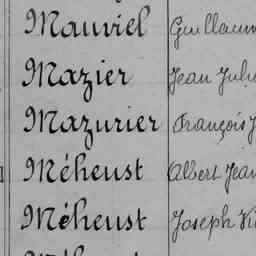 Mauviel Guillaum
Mazier Jean Jule
Mazurier François J
Méheust Albert Jean
Méheust Joseph Vi